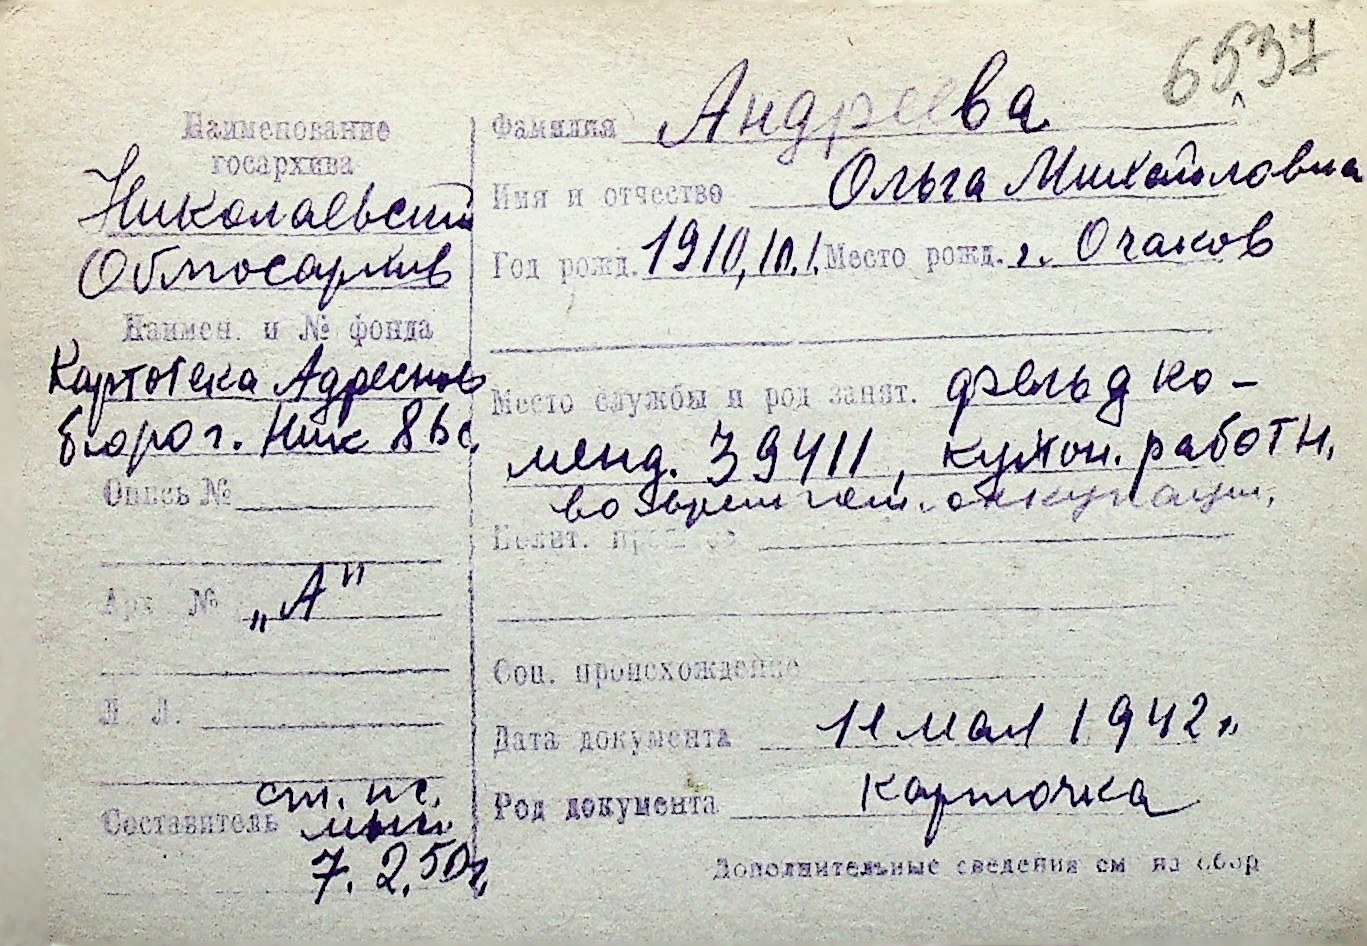 6537
Наименование
госархива
Николаевский
Облгосархив
Наимен. и № фонда
Картотека Адресного
бюро г. Ник 86с.
Опись №
Арх №
„А"
Л. Л.
Составитель ст. пс.
7. 2. 50 г.
Фамилия Андреева
Имя и отчество Ольга Михайловна
Год рожд. 1910, 10. 1. Место рожд. г. Очаков
Место службы и род занят. фельдко-
менд. 39411, кухон. работн.
во время нем. оккупации,
Полит.
Соц. происхождение
Дата документа 11 мая 1942 г.
Род документа карточка
Дополнительные сведения см на обор